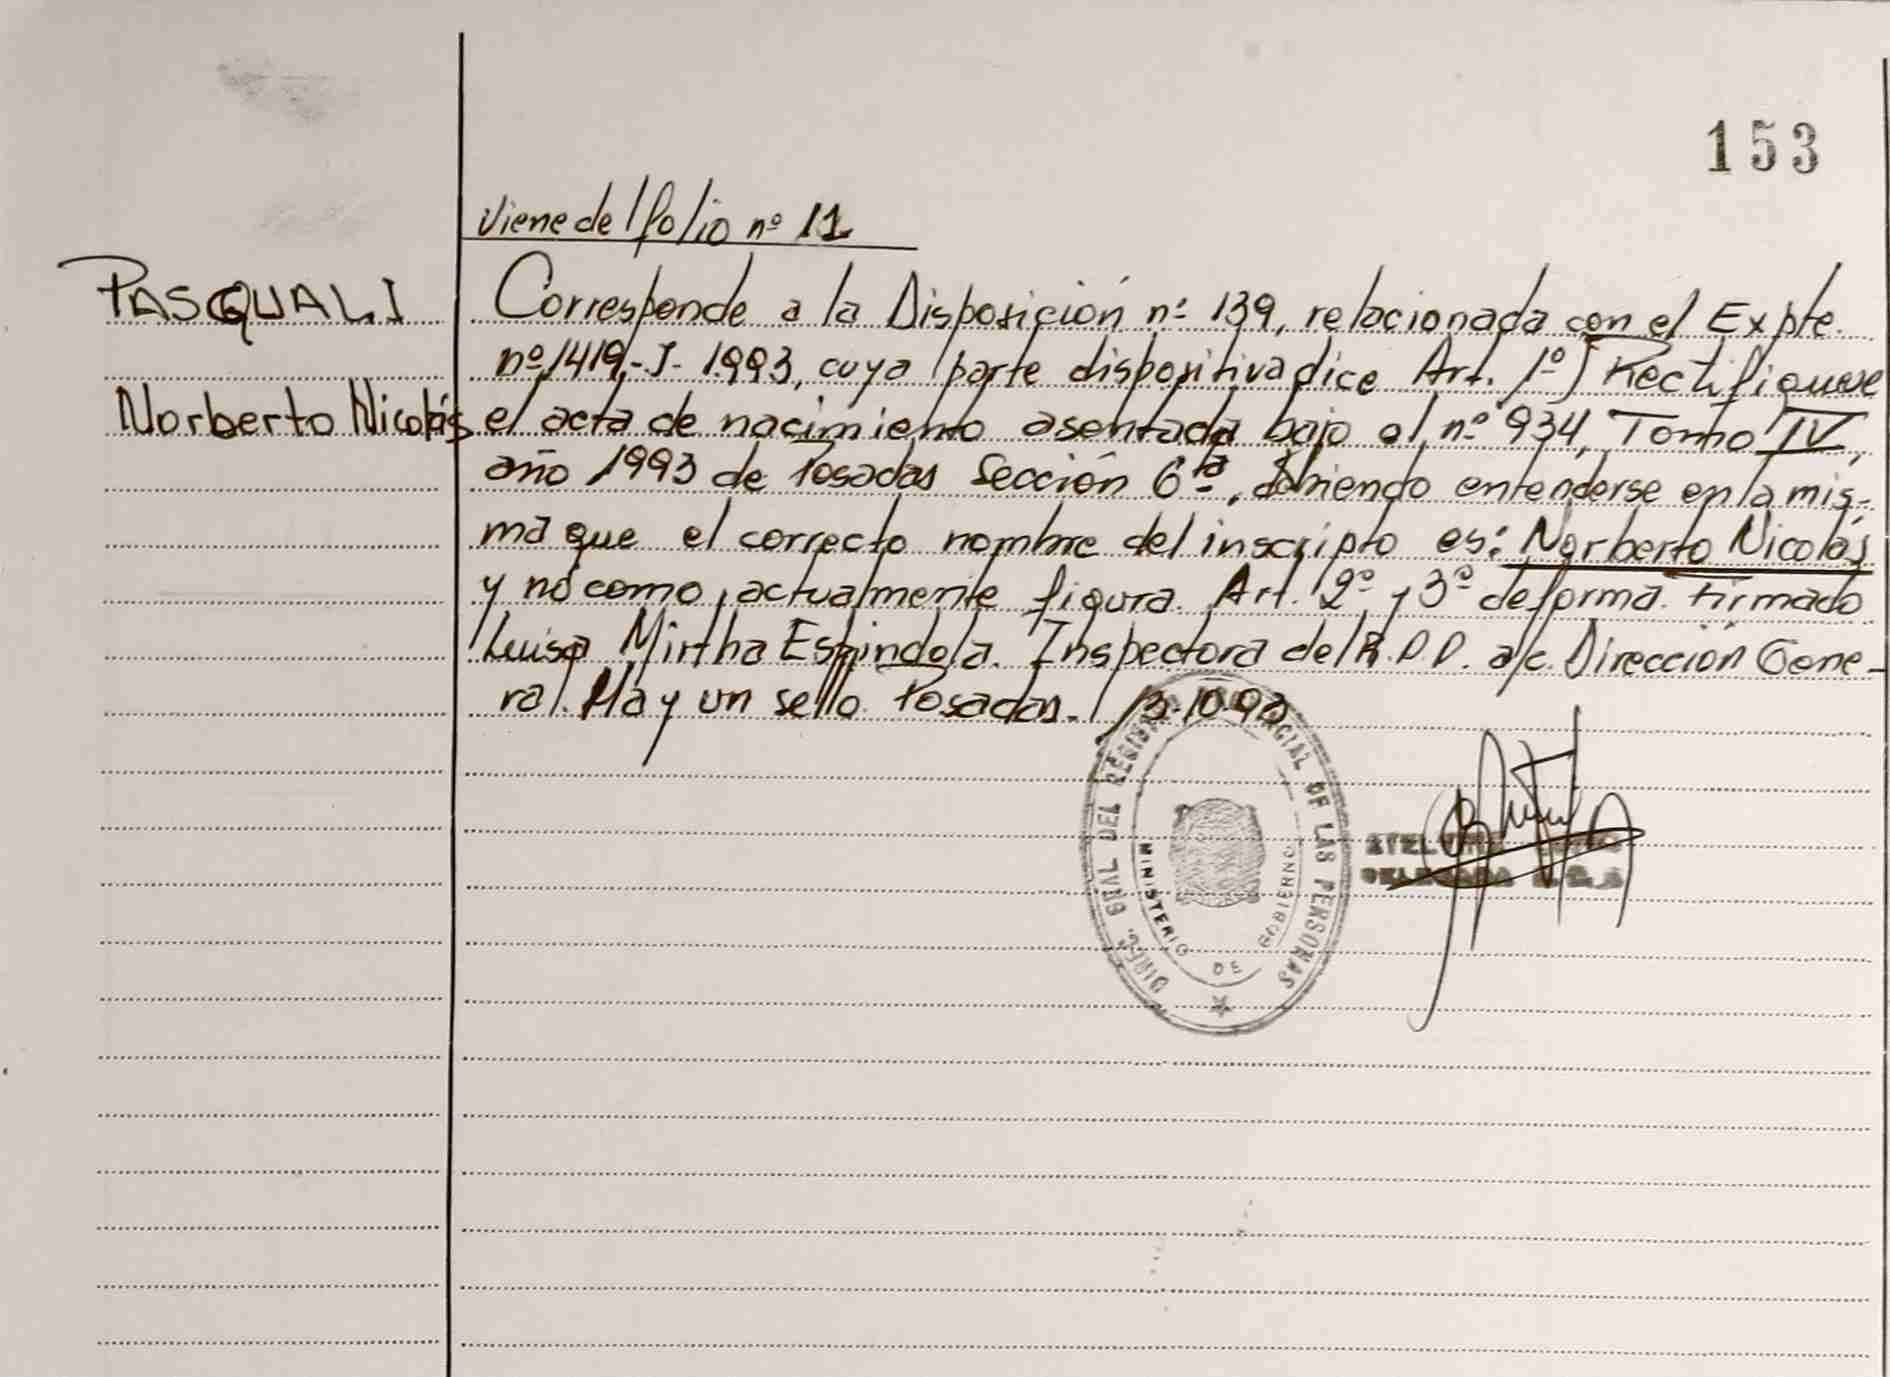 153
Viene del folio nº 11
PASQUALI
Norberto Nicolás
Corresponde a la Disposición nº 139, relacionada con el Expte.
nº 1419,-J- 1993, cuya parte dispositiva dice Art. 1º) Rectifiquese
el acta de nacimiento asentada bajo el nº 934, Tomo IV,
año 1993 de Posadas Sección 6ª, debiendo entenderse en la mis-
ma que el correcto nombre del inscripto es: Norberto Nicolás
y no como actualmente figura. Art. 2º y 3º de forma. Firmado
Luisa Mirtha Espindola. Inspectora del R.P.P. a/c. Dirección Gene-
ral. Hay un sello. Posadas. 13-10-93
DIREC. GRAL DEL REGISTRO PROVINCIAL DE LAS PERSONAS
MINISTERIO DE GOBIERNO